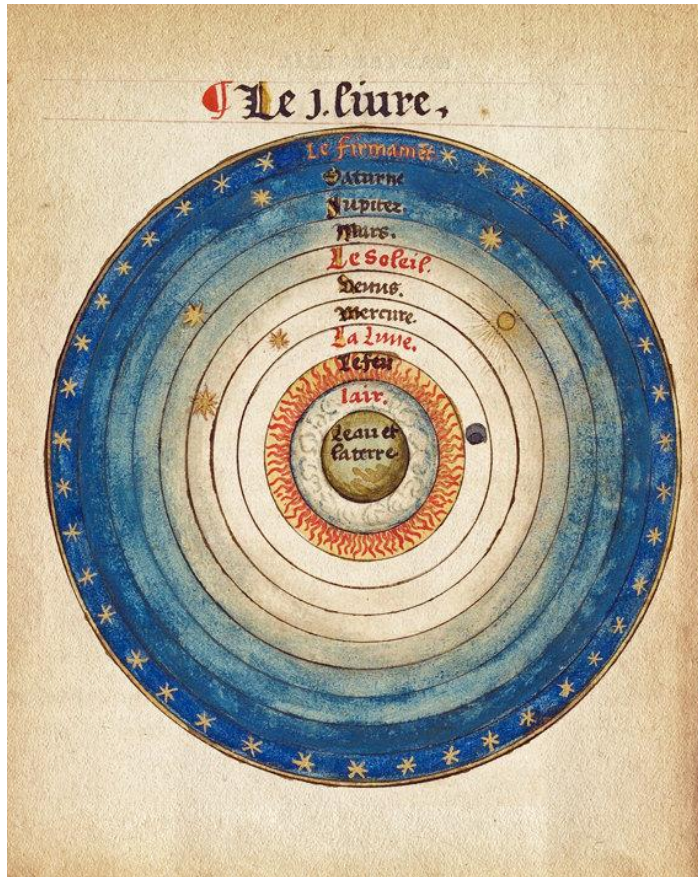 ¶ Le j. liure,
Le firmamēt
Saturne
Jupiter.
Mars.
Le Soleil.
Venus.
Mercure.
La Lune.
Le feu
lair.
Leau et
la terre